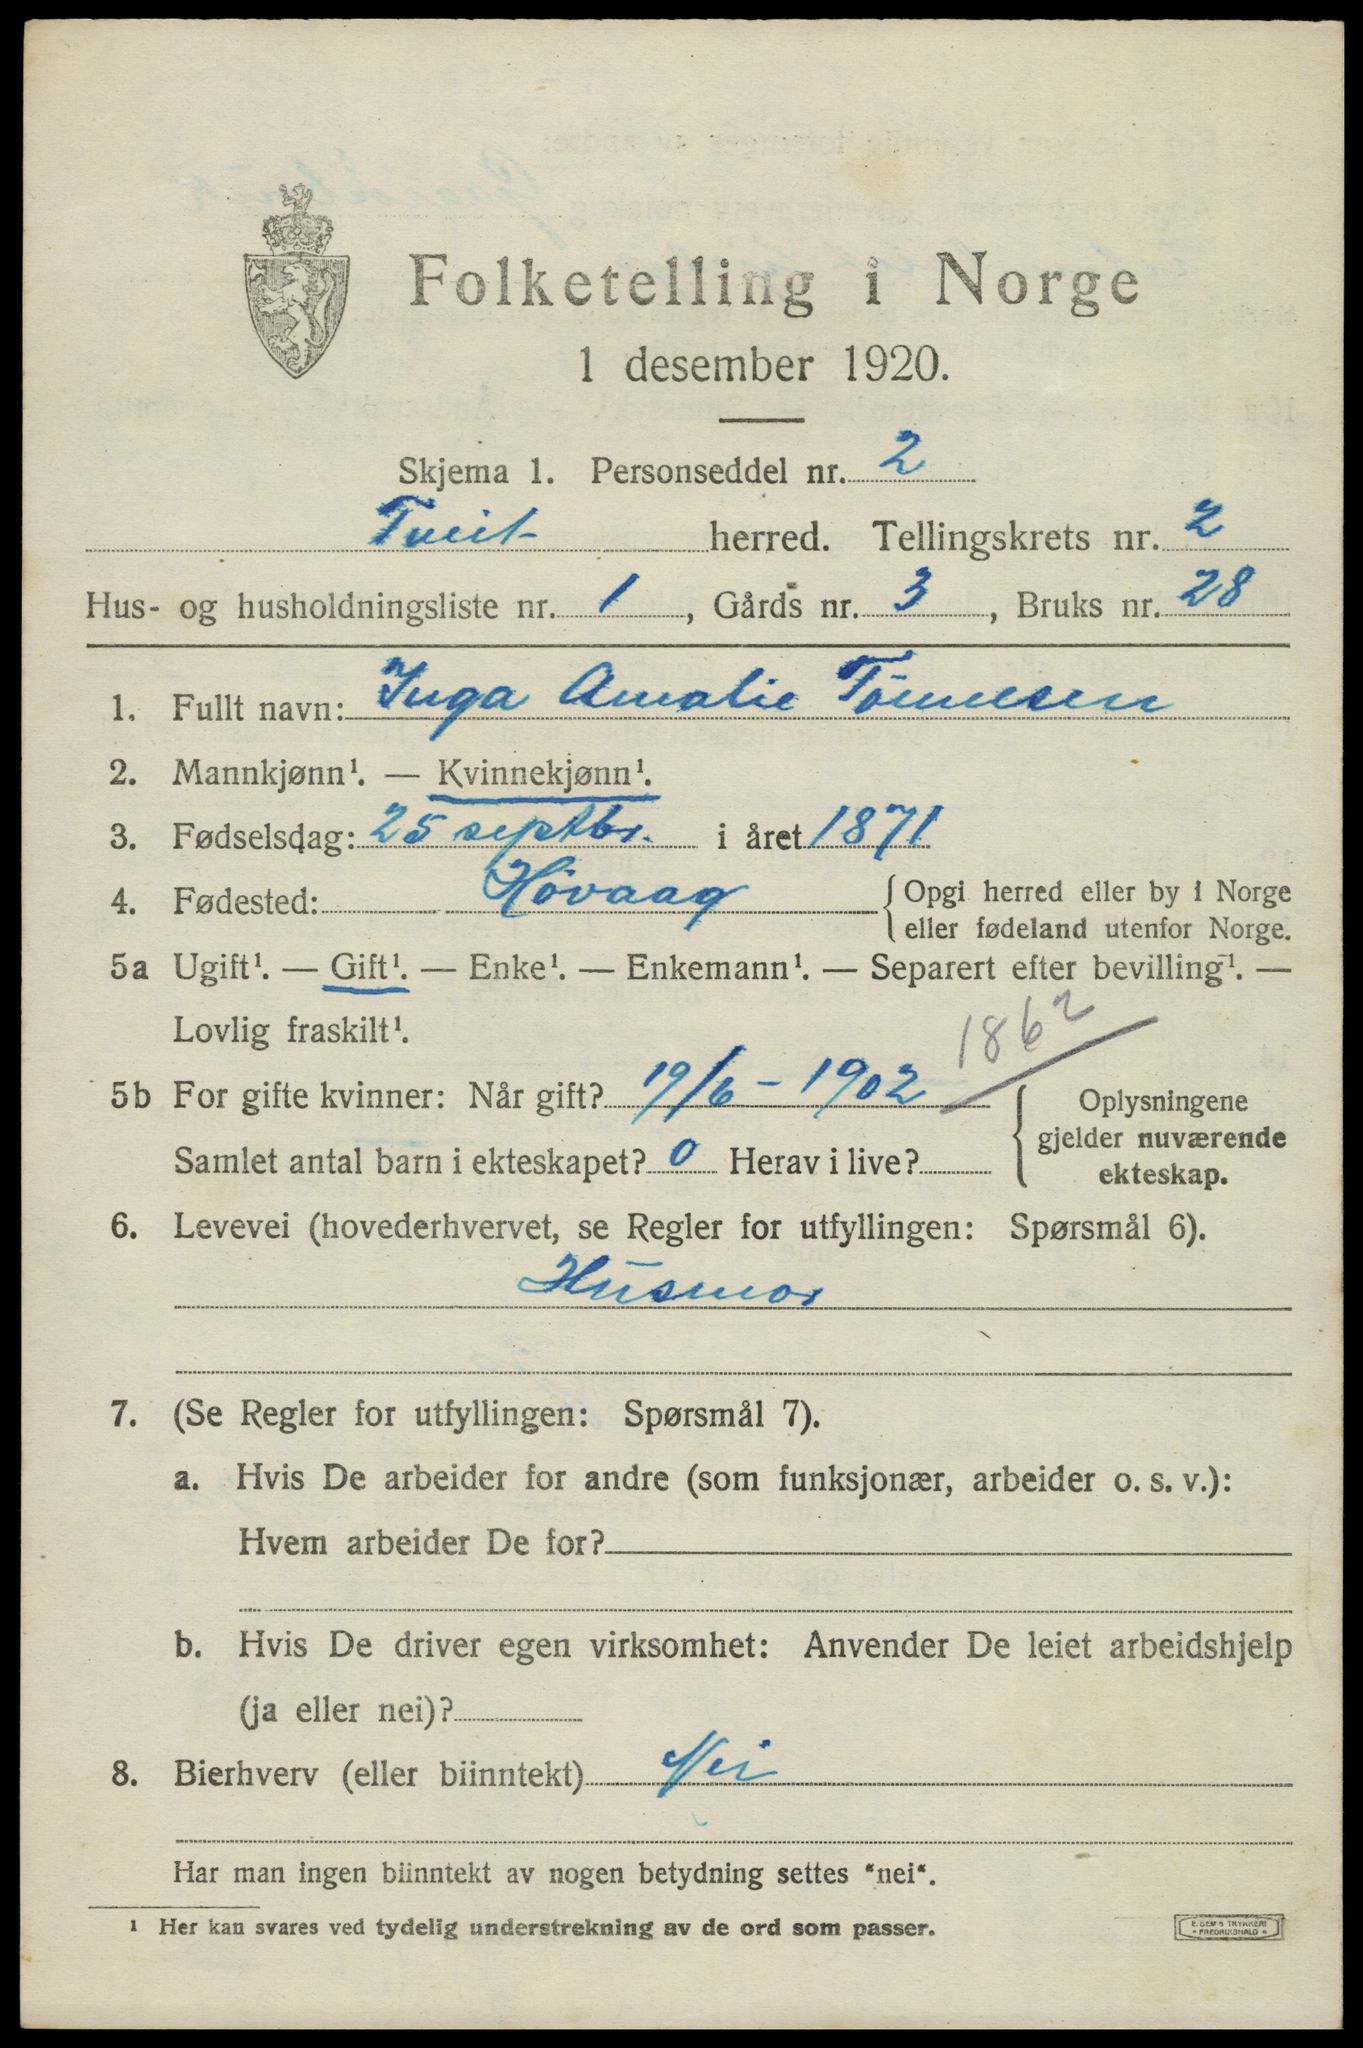 Folketelling i Norge
1 desember 1920.
Skjema 1. Personseddel nr. 2
Tveit herred. Tellingskrets nr. 2
Hus- og husholdningsliste nr. 1, Gårds nr. 3, Bruks nr. 28
1. Fullt navn: Inga Amalie Tönnesen
2. Mannkjønn¹. — Kvinnekjønn¹.
3. Fødselsdag: 25 septbr. i året 1871
4. Fødested: Hövaag { Opgi herred eller by i Norge
eller fødeland utenfor Norge.
5a Ugift¹. — Gift¹. — Enke¹. — Enkemann¹. — Separert efter bevilling¹. —
Lovlig fraskilt¹.
1862
5b For gifte kvinner: Når gift? 19/6 - 1902
Samlet antal barn i ekteskapet? 0 Herav i live?
{ Oplysningene
gjelder nuværende
ekteskap.
6. Levevei (hovederhvervet, se Regler for utfyllingen: Spørsmål 6).
Husmor
7. (Se Regler for utfyllingen: Spørsmål 7).
a. Hvis De arbeider for andre (som funksjonær, arbeider o. s. v.):
Hvem arbeider De for?
b. Hvis De driver egen virksomhet: Anvender De leiet arbeidshjelp
(ja eller nei)?
8. Bierhverv (eller biinntekt) Nei
Har man ingen biinntekt av nogen betydning settes "nei".
¹ Her kan svares ved tydelig understrekning av de ord som passer.
E. SEM'S TRYKKERI
FREDRIKSHALD